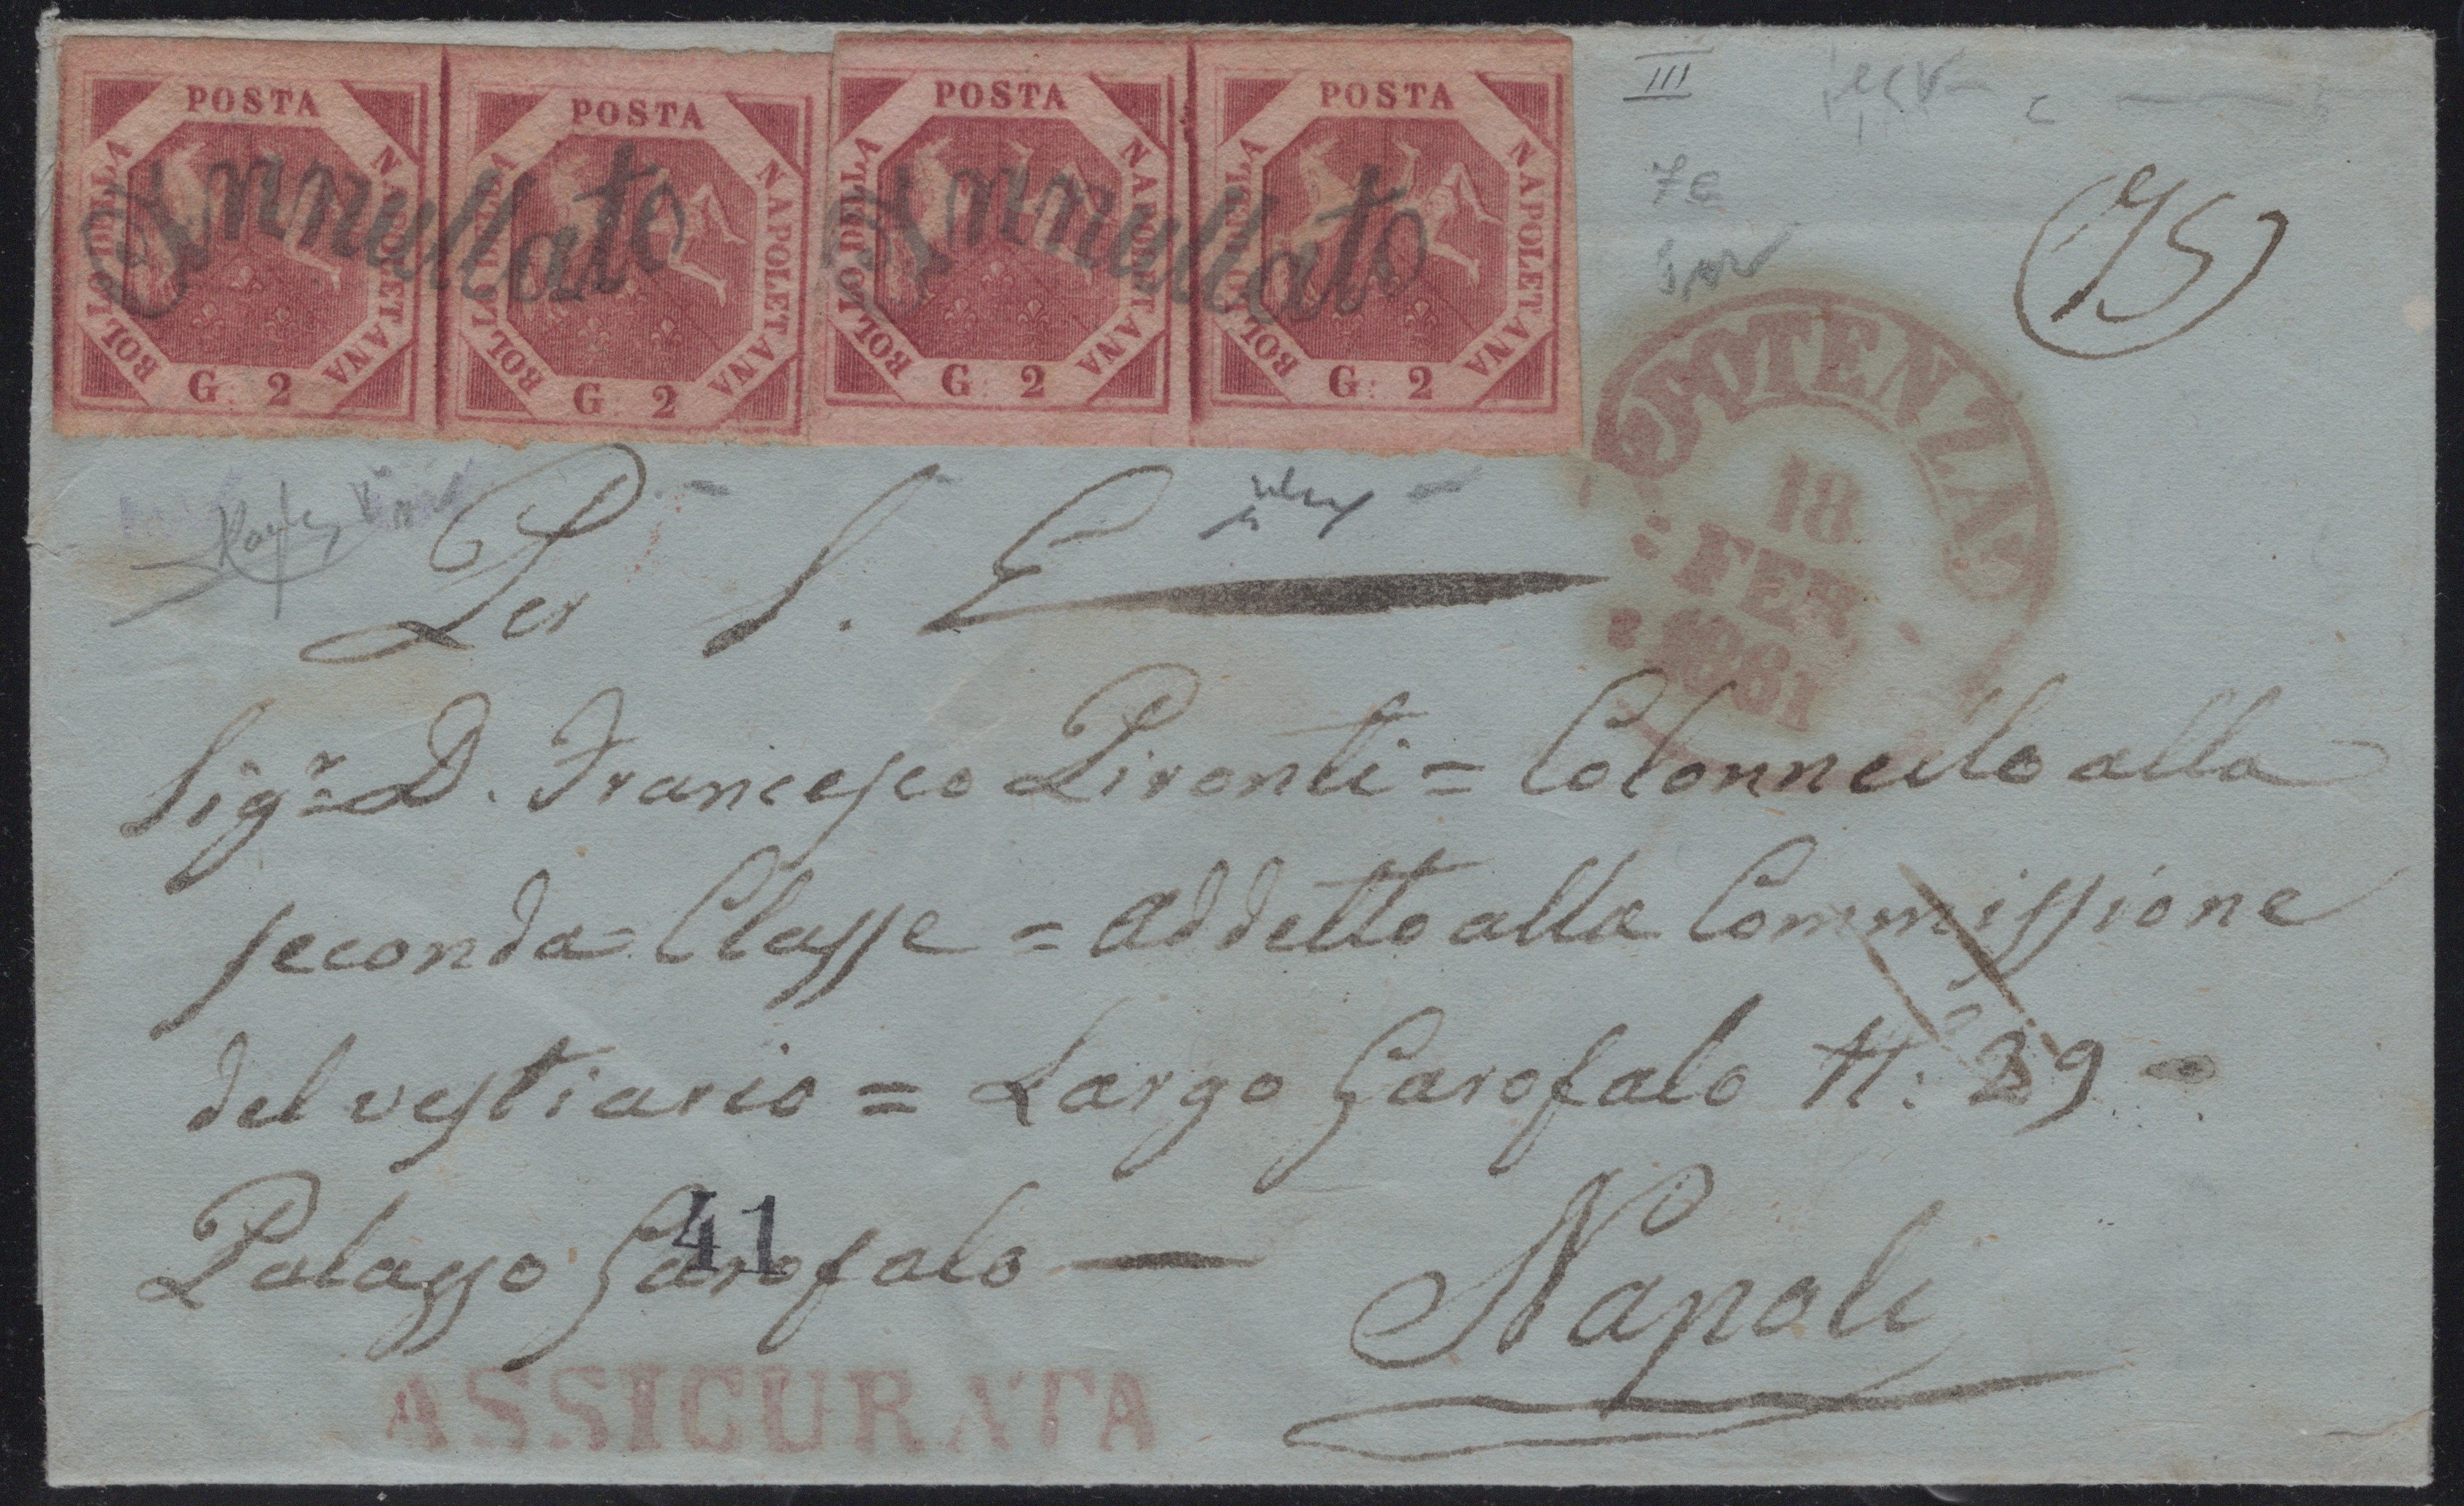 POSTA NAPOLETANA BOLLO DELLA G. 2
POSTA NAPOLETANA BOLLO DELLA G. 2
POSTA NAPOLETANA BOLLO DELLA G. 2
POSTA NAPOLETANA BOLLO DELLA G. 2
Annullato
Annullato
III
75
POTENZA
18
FEB.
1861
Per S. E
Sigr. D. Francesco Pironti = Colonnello alla
seconda Classe = addetto alla Commissione
del vestiario = Largo Garofalo N: 39
Palazzo Garofalo
41
Napoli
ASSICURATA